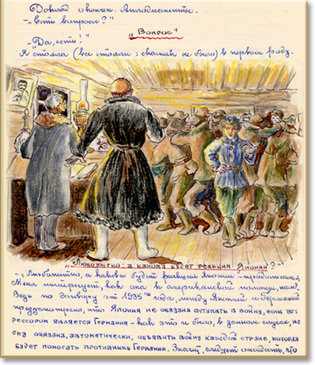 Доклад окончен. Аплодисменты.
- „Есть вопросы?"
„Вопрос"
- „Да, есть!"
Я стояла (все стояли: скамеек не было) в первом ряду.
„Любопытно: а какова будет реакция Японии?"
- „Любопытно, а какова будет реакция Японии
Меня интересует, как она
Ведь по договору от 1935 года, между Японией и Германией
предусмотрено, что Япония не обязана вступать в войну, если
рессором является Германия - как это и было, в данном случае, но
она обязана, автоматически, объявить войну каждой стране, которая
будет помогать противнику Германии. Значит, следует ожидать, что